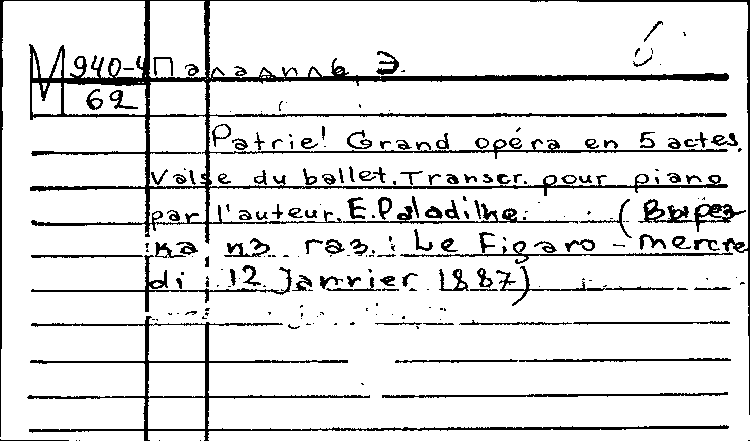 М 940-4 Паладиль, Э. б.
62
Patrie! Grand opéra en 5 actes.
Valse du ballet. Transcr. pour piano
par l'auteur. E. Paladilhe. (Вырез
ка из газ.: Le Figaro - mercre
di 12 Janvier 1887)